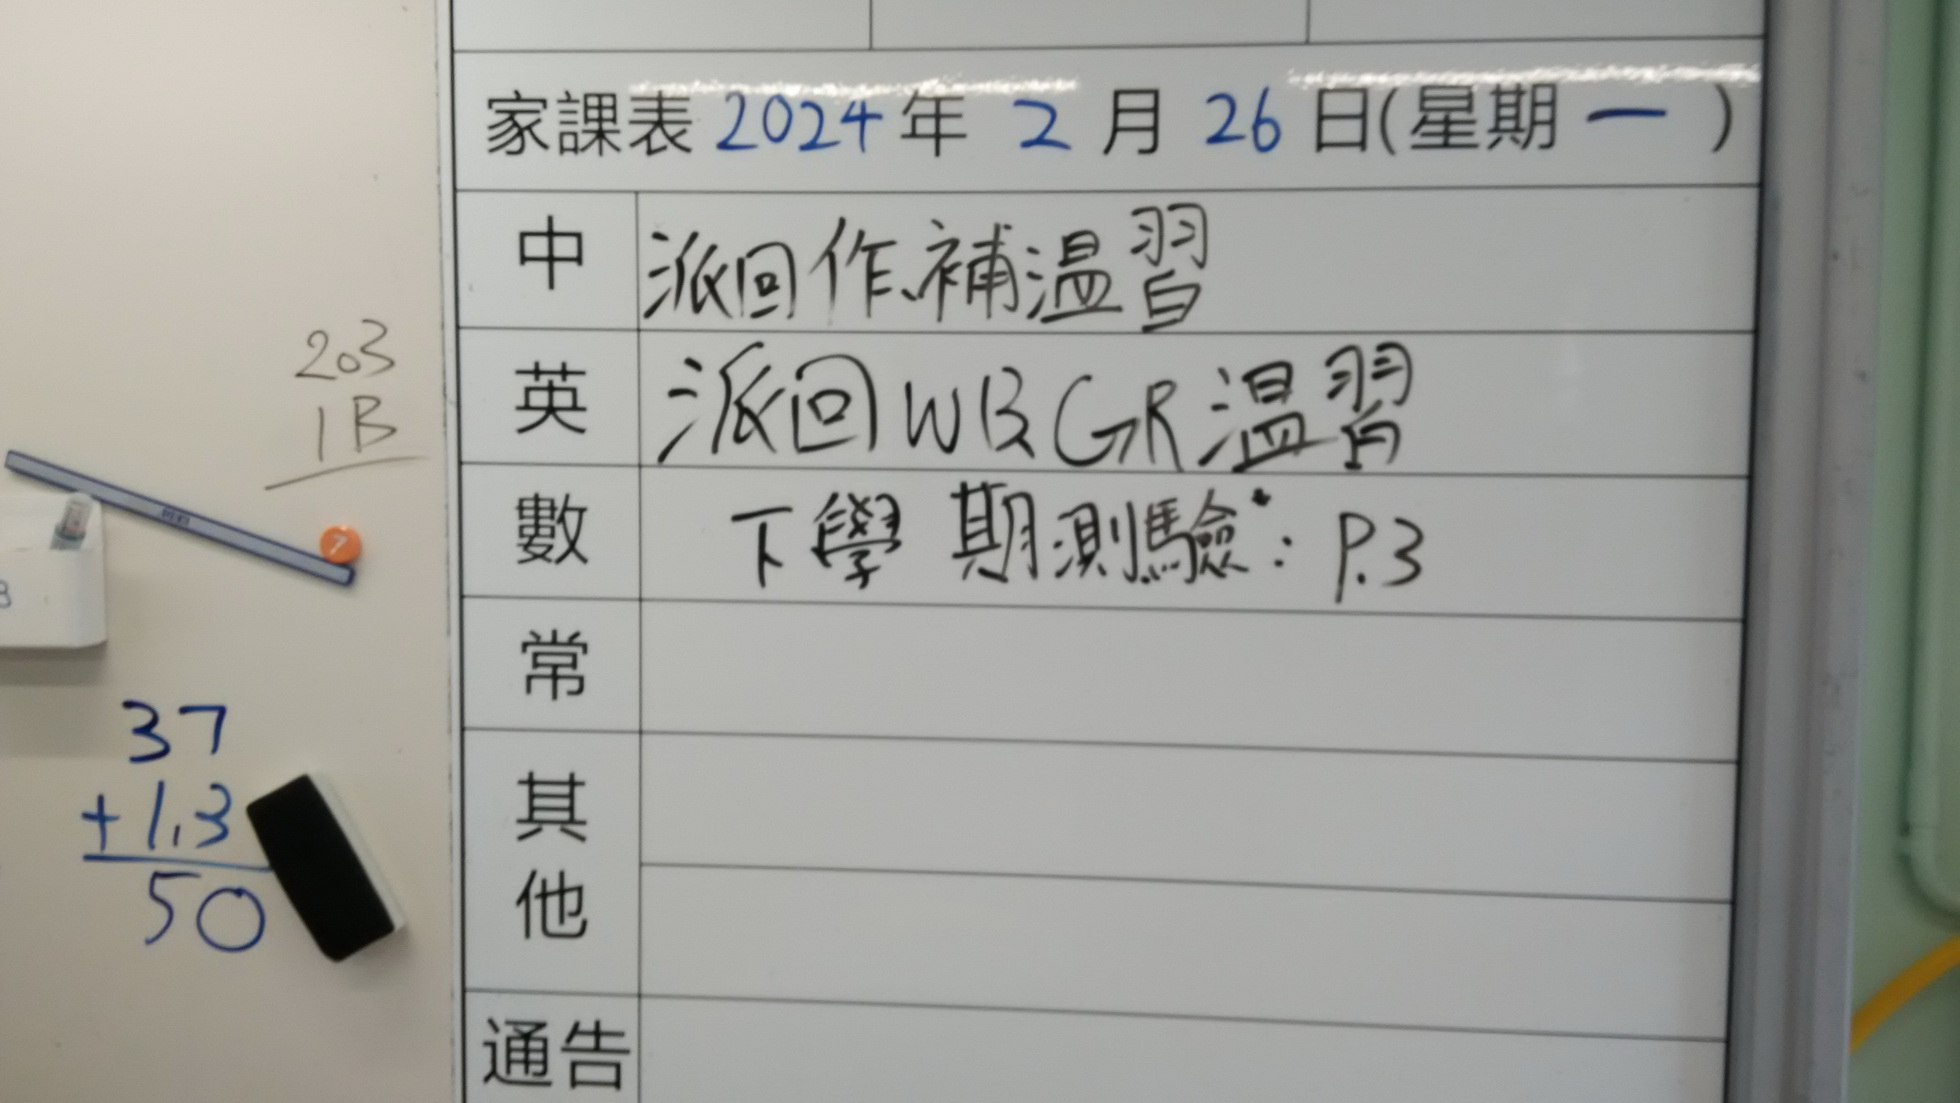 家課表 2024 年 2 月 26 日(星期 一 )
中 派回作、補溫習
英 派回 WB GR 溫習
數 下學期測驗: P.3
常
其他
通告
203
1B
7
37
+ 1,3
50